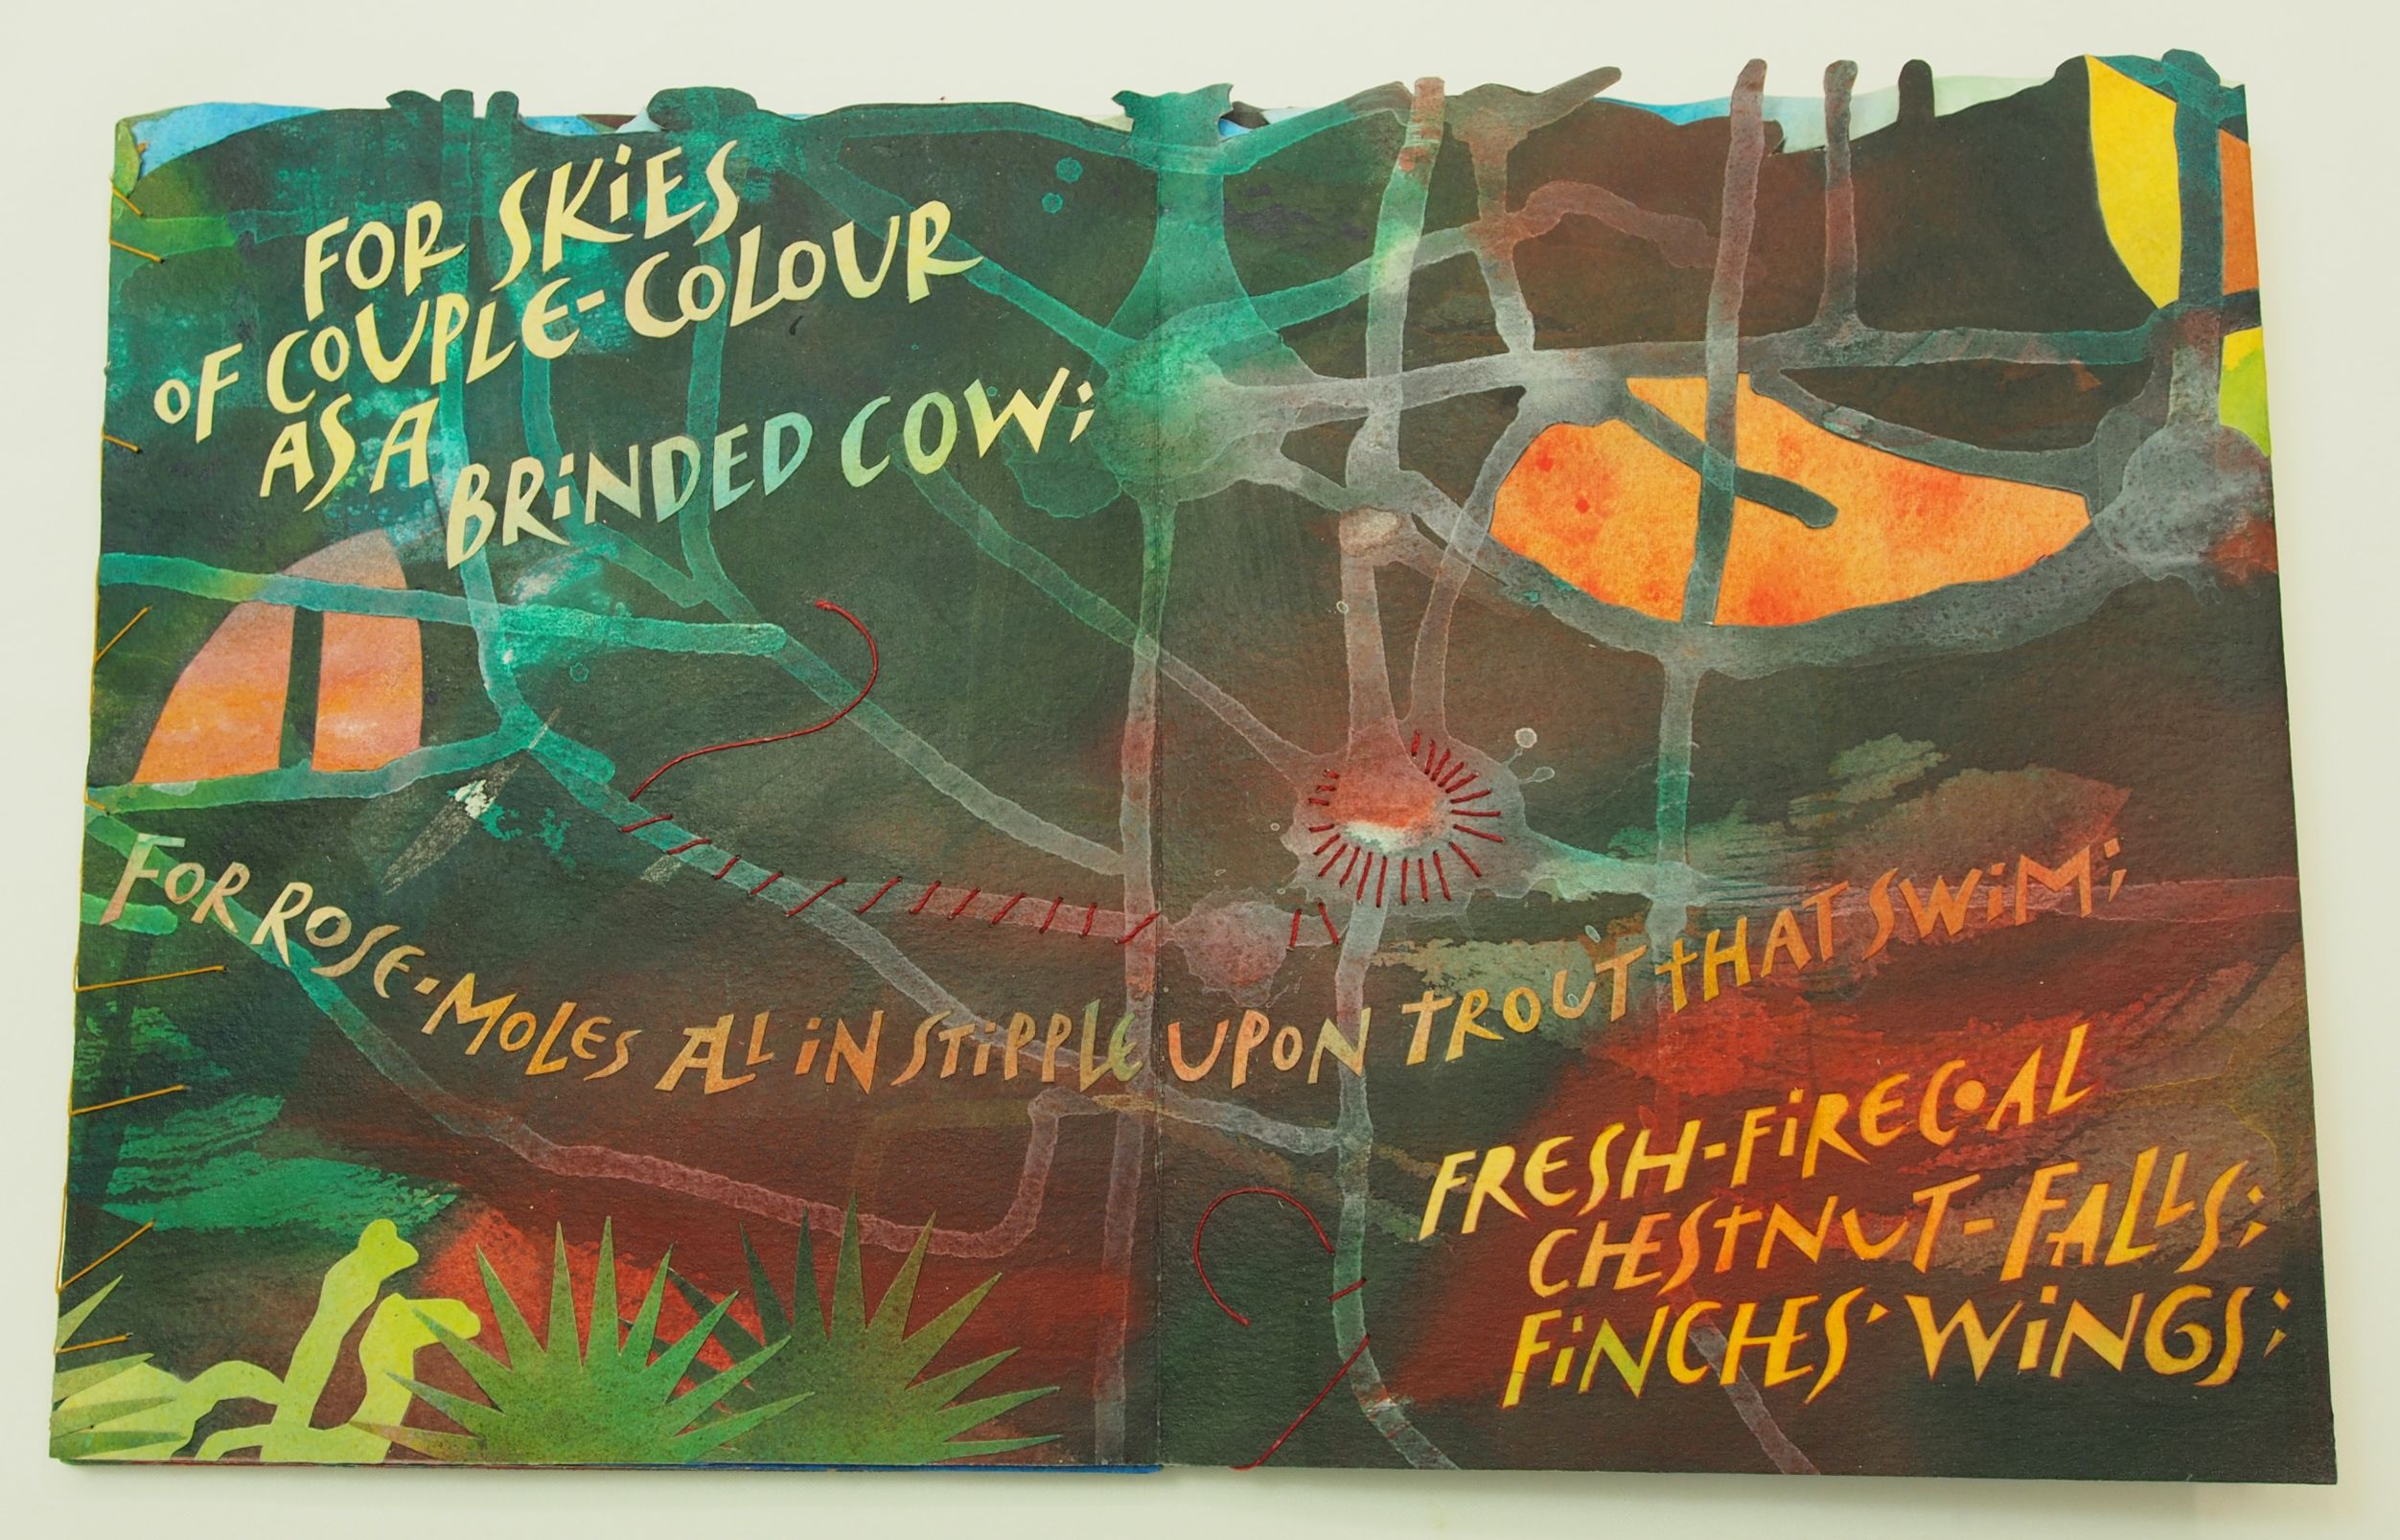 FOR SKiES
OF COUPLE-COLOUR
AS A
BRiNDED COW;
FOR ROSE-MOLES ALL iN STiPPLE UPON TROUT THAT SWiM;
FRESH-FiRECOAL
CHESTNUT-FALLS;
FiNCHES' WiNGS;